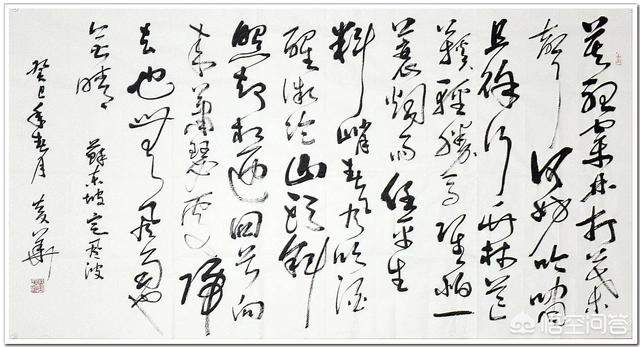 莫聽穿林打葉
聲何妨吟嘯
且徐行竹杖芒
鞋輕勝馬誰怕一
蓑烟雨任平生
料峭春風吹酒
醒微冷山頭斜
照却相迎回首向
来蕭瑟處歸
去也無風雨也
無晴 蘇東坡定風波
癸巳年春月
悟空问答